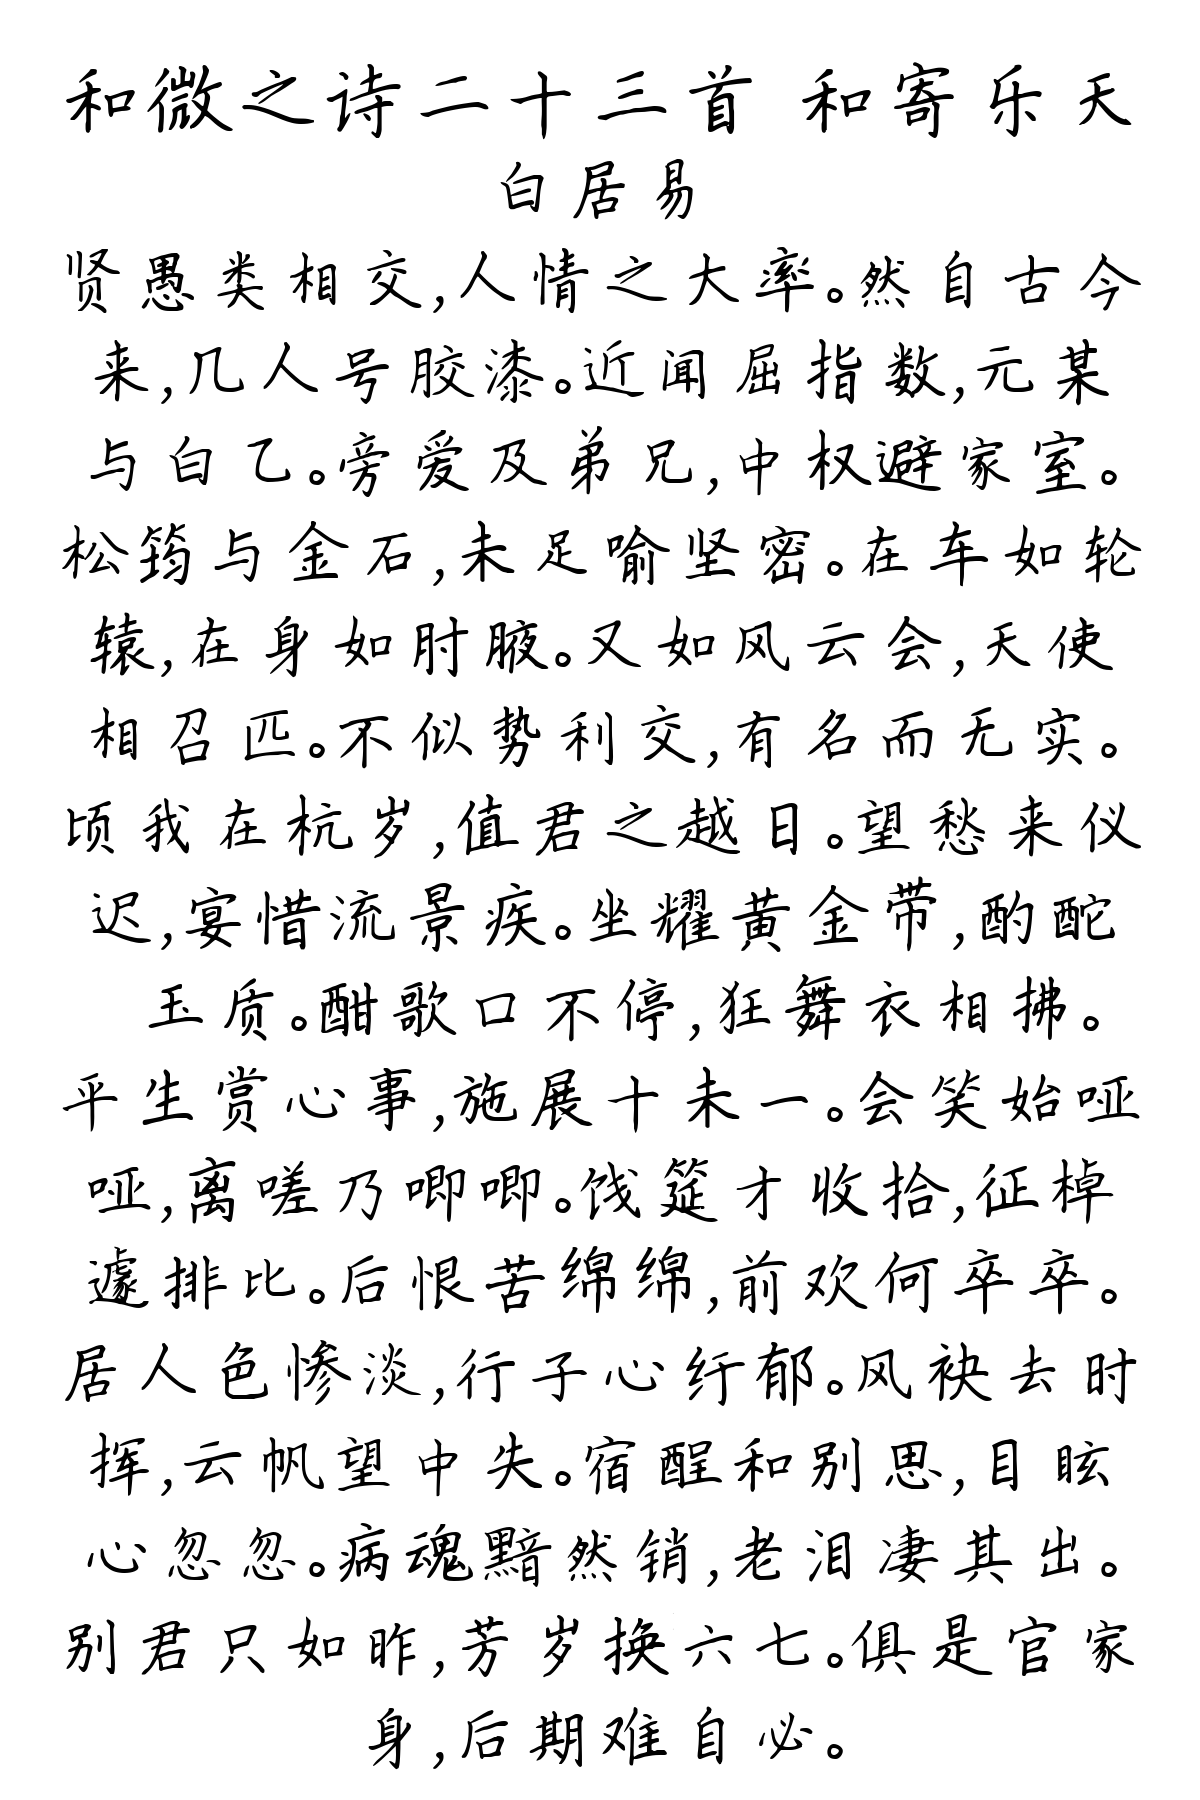 和微之诗二十三首 和寄乐天
白居易
贤愚类相交,人情之大率。然自古今
来,几人号胶漆。近闻屈指数,元某
与白乙。旁爱及弟兄,中权避家室。
松筠与金石,未足喻坚密。在车如轮
辕,在身如肘腋。又如风云会,天使
相召匹。不似势利交,有名而无实。
顷我在杭岁,值君之越日。望愁来仪
迟,宴惜流景疾。坐耀黄金带,酌酡
玉质。酣歌口不停,狂舞衣相拂。
平生赏心事,施展十未一。会笑始哑
哑,离嗟乃唧唧。饯筵才收拾,征棹
遽排比。后恨苦绵绵,前欢何卒卒。
居人色惨淡,行子心纡郁。风袂去时
挥,云帆望中失。宿酲和别思,目眩
心忽忽。病魂黯然销,老泪凄其出。
别君只如昨,芳岁换六七。俱是官家
身,后期难自必。